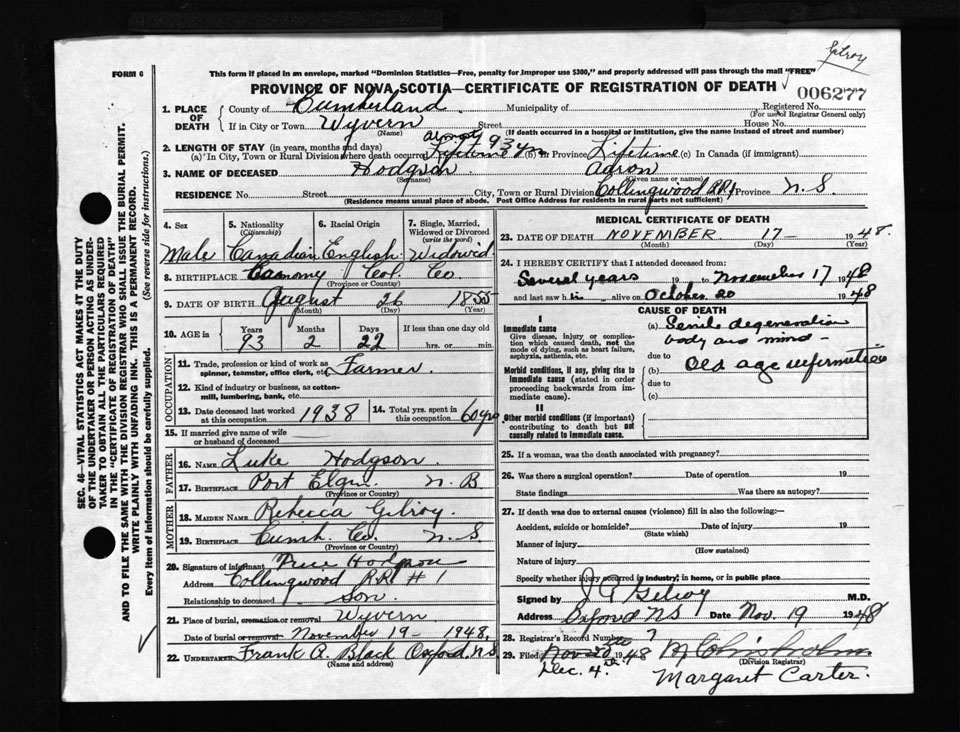 Gilroy
FORM 6
This form if placed in an envelope, marked "Dominion Statistics—Free, penalty for improper use $300," and properly addressed will pass through the mail "FREE"
PROVINCE OF NOVA SCOTIA—CERTIFICATE OF REGISTRATION OF DEATH
006277
1. PLACE OF DEATH
County of Cumberland Municipality of Registered No.
(For use of Registrar General only)
If in City or Town Wyvern Street House No.
(Name) (If death occurred in a hospital or institution, give the name instead of street and number)
2. LENGTH OF STAY (in years, months and days) almost 93 yrs
(a) In City, Town or Rural Division where death occurred Lifetime (b) In Province Lifetime (c) In Canada (if immigrant)
3. NAME OF DECEASED Hodgson Aaron
(Surname) (Given name or names)
RESIDENCE No. Street City, Town or Rural Division Collingwood RR1 Province N.S.
(Residence means usual place of abode. Post Office Address for residents in rural parts not sufficient)
4. Sex 5. Nationality (Citizenship) 6. Racial Origin 7. Single, Married, Widowed or Divorced (write the word)
Male Canadian English Widowed
8. BIRTHPLACE Col. Co.
(Province or Country)
9. DATE OF BIRTH August 26 1855
(Month) (Day) (Year)
10. AGE in Years Months Days If less than one day old
93 2 22 hrs. or min.
OCCUPATION
11. Trade, profession or kind of work as spinner, teamster, office clerk, etc. Farmer
12. Kind of industry or business, as cotton-mill, lumbering, bank, etc.
13. Date deceased last worked at this occupation 1938 14. Total yrs. spent in this occupation 60 yrs
15. If married give name of wife or husband of deceased
FATHER
16. NAME Luke Hodgson
17. BIRTHPLACE Port Elgin N.B.
(Province or Country)
MOTHER
18. MAIDEN NAME Rebecca Gilroy
19. BIRTHPLACE Cumb. Co. N.S.
(Province or Country)
20. Signature of informant Hodgson
Address Collingwood RR #1
Relationship to deceased Son
21. Place of burial, cremation or removal Wyvern
Date of burial or removal November 19- 1948
22. UNDERTAKER Frank R. Black Oxford, N.S.
(Name and address)
MEDICAL CERTIFICATE OF DEATH
23. DATE OF DEATH NOVEMBER 17- 1948.
(Month) (Day) (Year)
24. I HEREBY CERTIFY that I attended deceased from:
Several years 19 to November 17 1948
and last saw him alive on October 20 1948
CAUSE OF DEATH
I
Immediate cause
Give disease, injury or complication which caused death, not the mode of dying, such as heart failure, asphyxia, asthenia, etc.
(a) Senile degeneration
body and mind -
due to
Morbid conditions, if any, giving rise to immediate cause (stated in order proceeding backwards from immediate cause).
(b) Old age infirmities
due to
(c)
II
Other morbid conditions (if important) contributing to death but not causally related to immediate cause.
25. If a woman, was the death associated with pregnancy?
26. Was there a surgical operation? Date of operation 19
State findings Was there an autopsy?
27. If death was due to external causes (violence) fill in also the following:—
Accident, suicide or homicide? Date of injury 19
(State which)
Manner of injury
(How sustained)
Nature of injury
Specify whether injury occurred in industry, in home, or in public place
Signed by Gilroy M.D.
Address Oxford NS Date Nov. 19 1948
28. Registrar's Record Number 7
29. Filed Nov 20 1948 M Chisholm
(Division Registrar)
Dec. 4th Margaret Carter.
SEC. 46—VITAL STATISTICS ACT MAKES IT THE DUTY
OF THE UNDERTAKER OR PERSON ACTING AS UNDER-
TAKER TO OBTAIN ALL THE PARTICULARS REQUIRED
IN THE "CERTIFICATE OF REGISTRATION OF DEATH"
AND TO FILE THE SAME WITH THE DIVISION REGISTRAR WHO SHALL ISSUE THE BURIAL PERMIT.
WRITE PLAINLY WITH UNFADING INK. THIS IS A PERMANENT RECORD.
Every item of information should be carefully supplied. (See reverse side for instructions.)